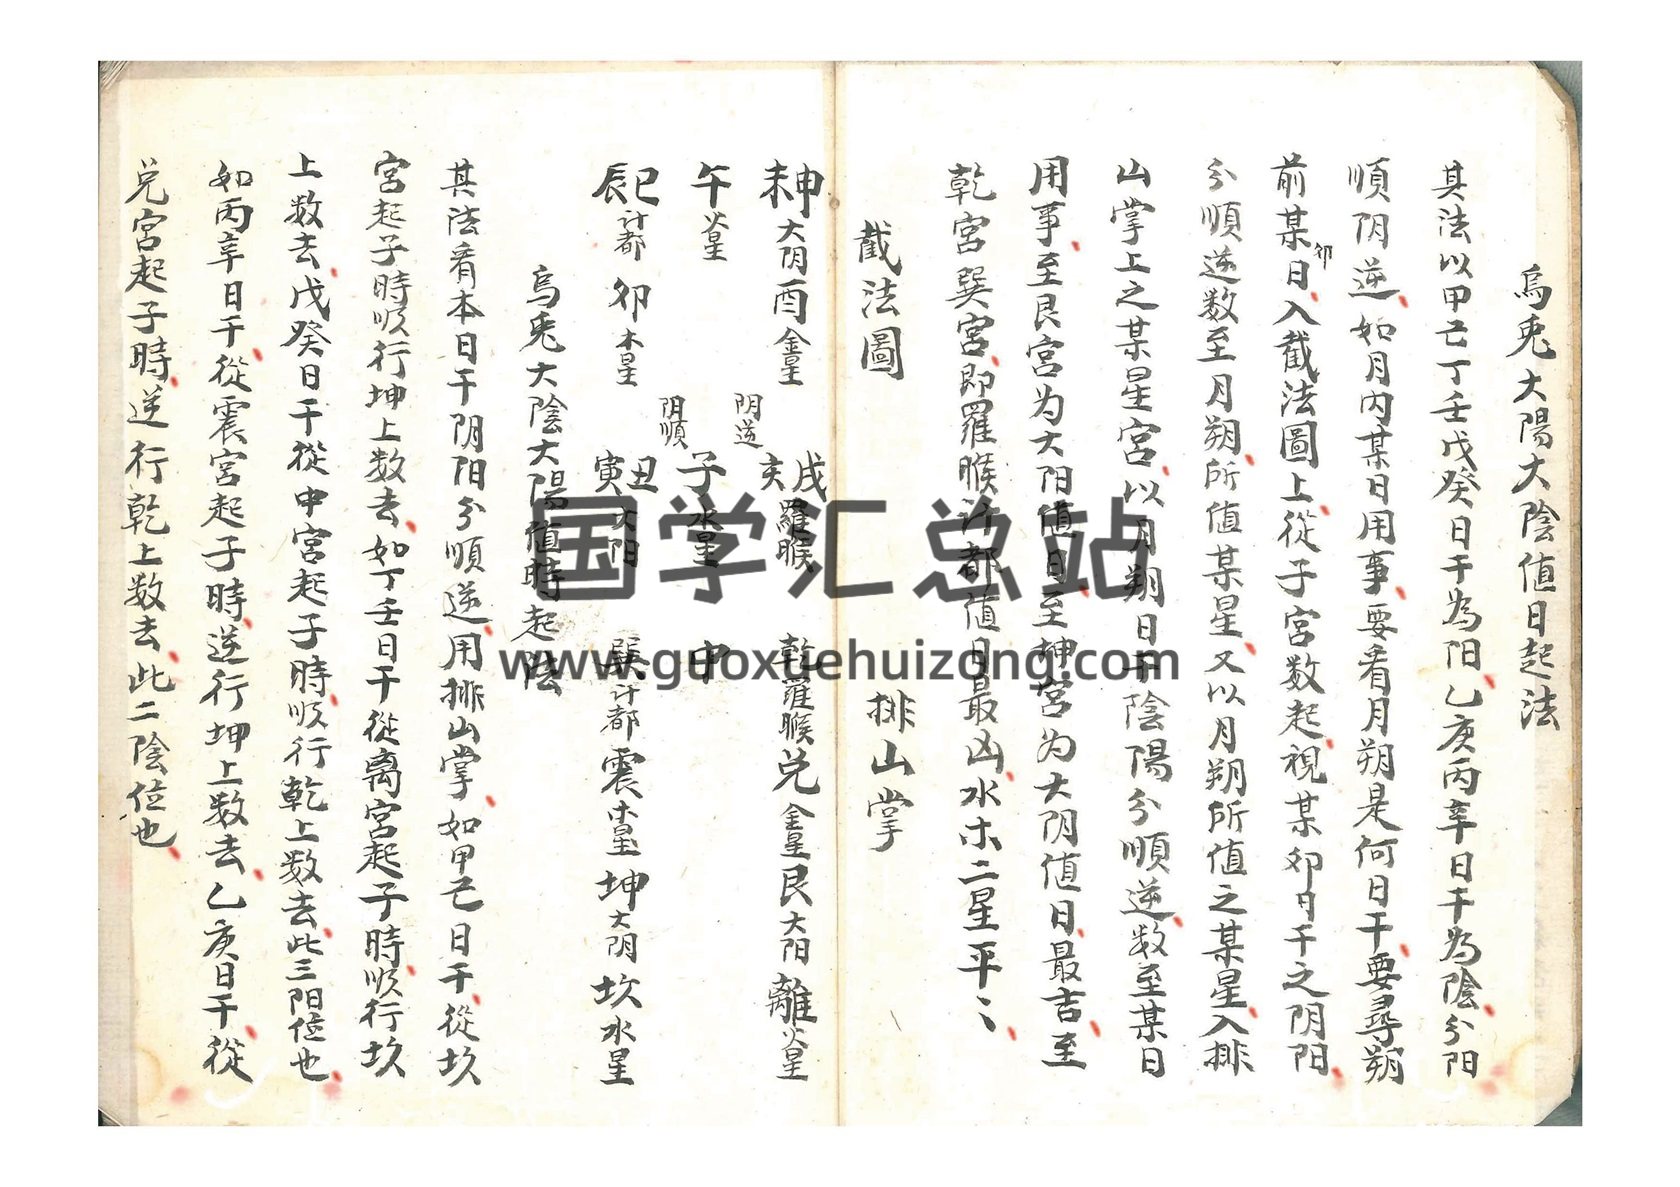 烏兎大陽大陰值日起法
其法以甲己丁壬戊癸日干為阳乙庚丙辛日干為陰分阳
順阴逆如月内某日用事要看月朔是何日干要尋朔
前某卯日入截法圖上從子宮数起視某卯日干之阴阳
分順逆数至月朔所值某星又以月朔所值之某星入排
山掌上之某星宮以月朔日干陰陽分順逆数至某日
用事至艮宮为大阳值日至坤宮为大阴值日最吉至
乾宮巽宮即羅睺计都值日最凶水木二星平〻
截法圖
排山掌
未申大阴酉金星
戌亥羅睺
乾羅睺兑金星艮大阳離火星
午火星
阴逆
子水星
中
巳辰计都卯木星
阴順
丑寅大阳
巽计都震木星坤大阴坎水星
烏兎大陰大陽值時起法
其法看本日干阴阳分順逆用排山掌如甲己日干從坎
宮起子時順行坤上数去如丁壬日干從离宮起子時順行坎
上数去戊癸日干從中宮起子時順行乾上数去此三阳位也
如丙辛日干從震宮起子時逆行坤上数去乙庚日干從
兑宮起子時逆行乾上数去此二陰位也
国学汇总站
www.guoxuehuizong.com